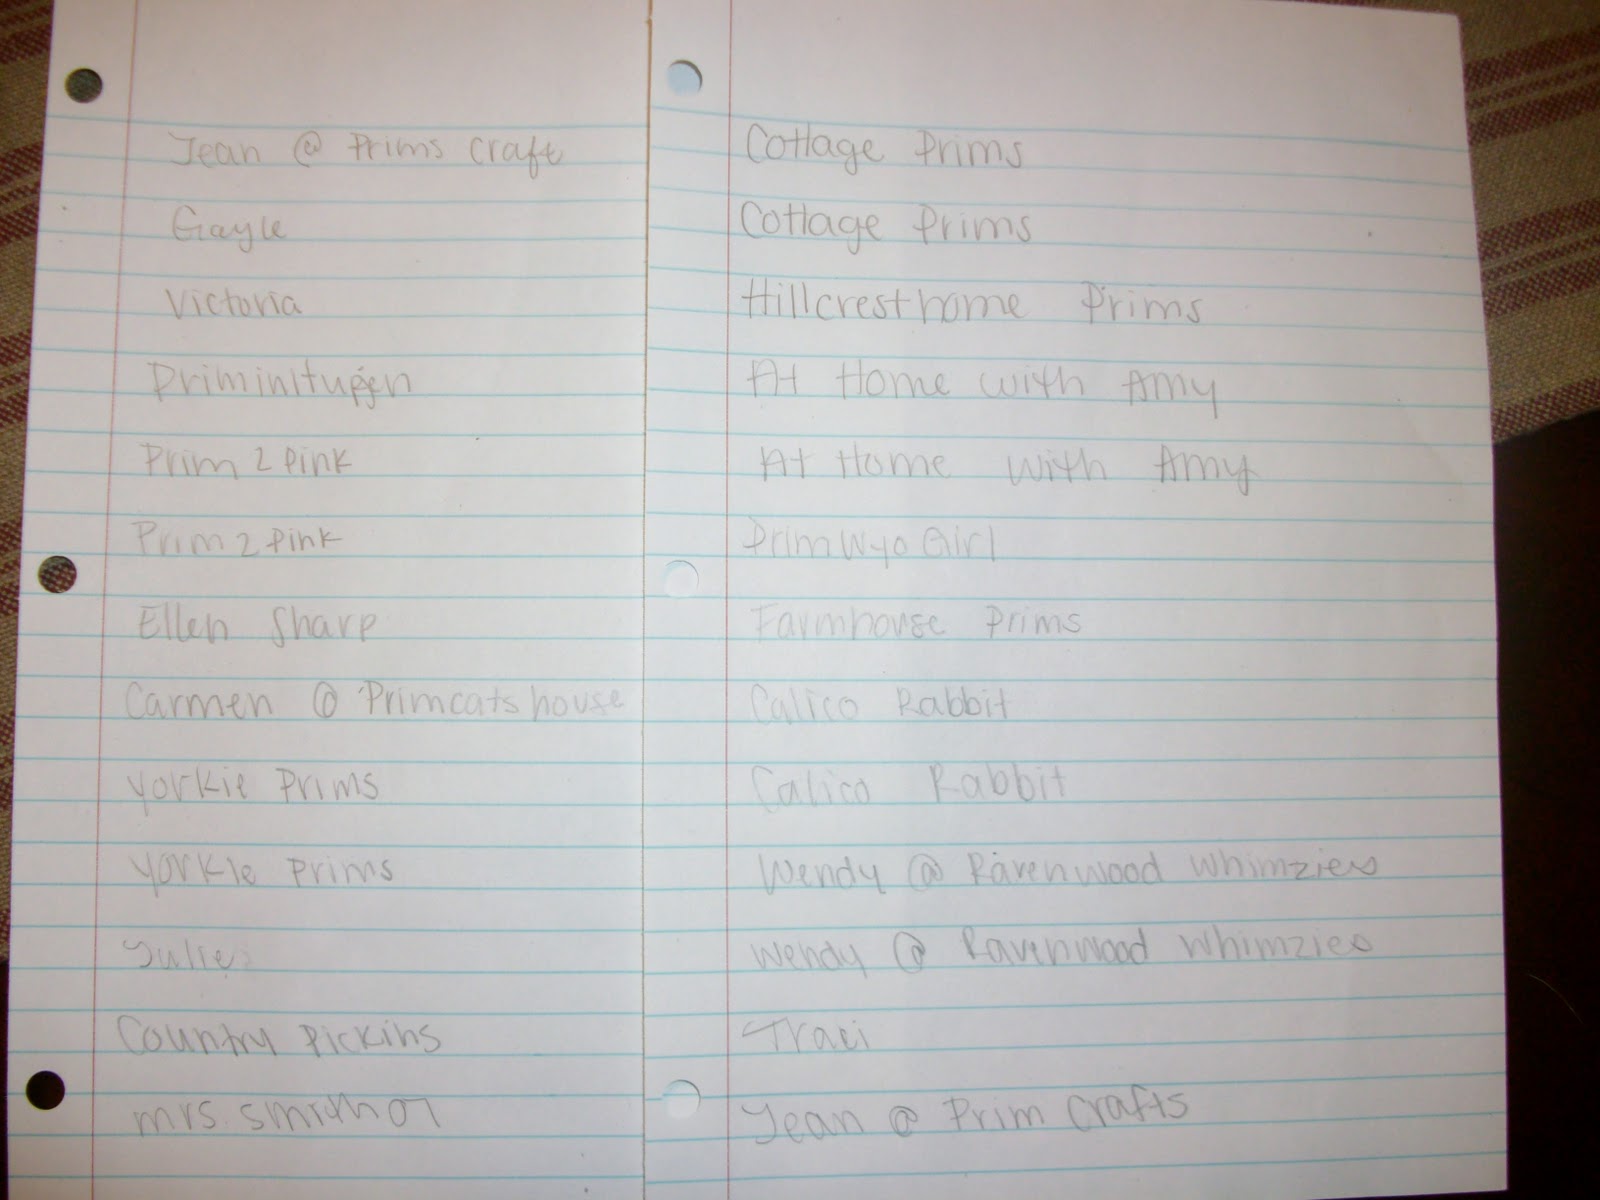 Jean @ Prims Craft
Gayle
Victoria
Priminitupgen
Prim 2 Pink
Prim 2 Pink
Ellen Sharp
Carmen @ Primcatshouse
Yorkie Prims
Yorkie Prims
Julie
Country Pickins
mrs. smith 07
Cottage Prims
Cottage Prims
Hillcresthome Prims
At Home with Amy
At Home with Amy
Prim Wyo Girl
Farmhouse Prims
Calico Rabbit
Calico Rabbit
Wendy @ Ravenwood Whimzies
Wendy @ Ravenwood Whimzies
Traci
Jean @ Prim Crafts